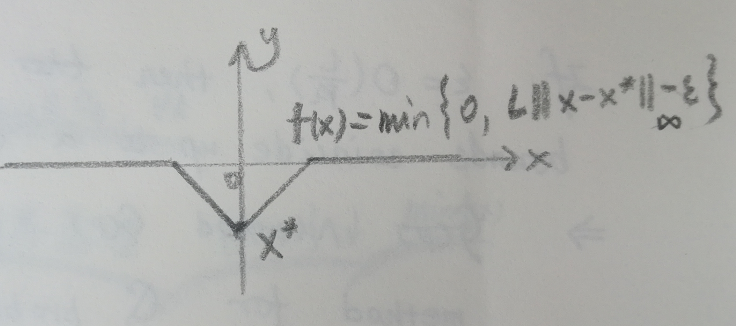 y
f(x)=min{0, L||x-x*||∞-ε}
x
0
x*